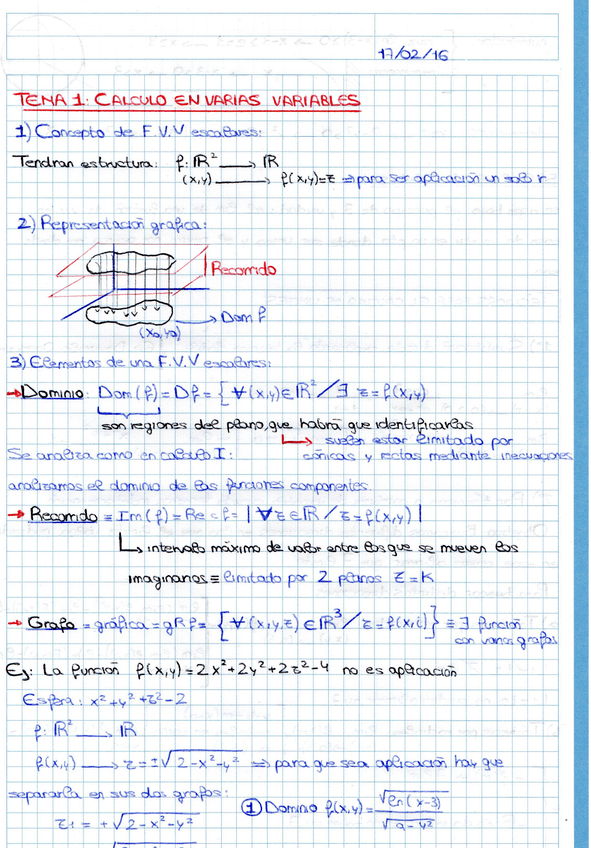 17/02/16
TEMA 1: CALCULO EN VARIAS VARIABLES
1) Concepto de F.V.V escalares:
Tendran estructura: f: ℝ² ⟶ ℝ
(x,y) ⟶ f(x,y)=z ⇒ para ser aplicación un solo r
2) Representación grafica:
Recorrido
Dom f
(x₀,y₀)
3) Elementos de una F.V.V escalares:
→ Dominio: Dom(f) = Df = { ∀(x,y)∈ℝ² / ∃ z=f(x,y)
son regiones del plano, que habrá que identificarlas
↳ suelen estar limitado por
Se analiza como en calculo I: cónicas y rectas mediante inecuaciones
analizamos el dominio de las funciones componentes.
→ Recorrido = Im(f) = Rec f = | ∀z∈ℝ / z=f(x,y) |
↳ intervalo máximo de valor entre los que se mueven los
imaginarios ≡ limitado por 2 planos z=K
→ Grafo = gráfica = gRf = { ∀(x,y,z)∈ℝ³ / z=f(x,i) } ≡ ∃ función
con varios grafos
Ej: La función f(x,y)=2x²+2y²+2z²-4 no es aplicación
Esfera: x²+y²+z²-2
f: ℝ² ⟶ ℝ
f(x,y) ⟶ z=±√2-x²-y² ⇒ para que sea aplicación hay que
separarla en sus dos grafos:
① Domino f(x,y)= √ln(x-3) / √9-y²
z₁ = +√2-x²-y²